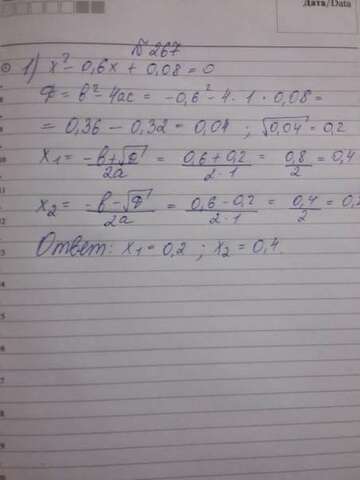 Дата/Data
№267
1) x² - 0,6x + 0,08 = 0
Ф = b² - 4ac = -0,6² - 4 · 1 · 0,08 =
= 0,36 - 0,32 = 0,04 ; √0,04 = 0,2
x₁ = (-b + √Ф)/2a = (0,6 + 0,2)/(2 · 1) = 0,8/2 = 0,4
x₂ = (-b - √Ф)/2a = (0,6 - 0,2)/(2 · 1) = 0,4/2 = 0,2
Ответ: x₁ = 0,2 ; x₂ = 0,4.